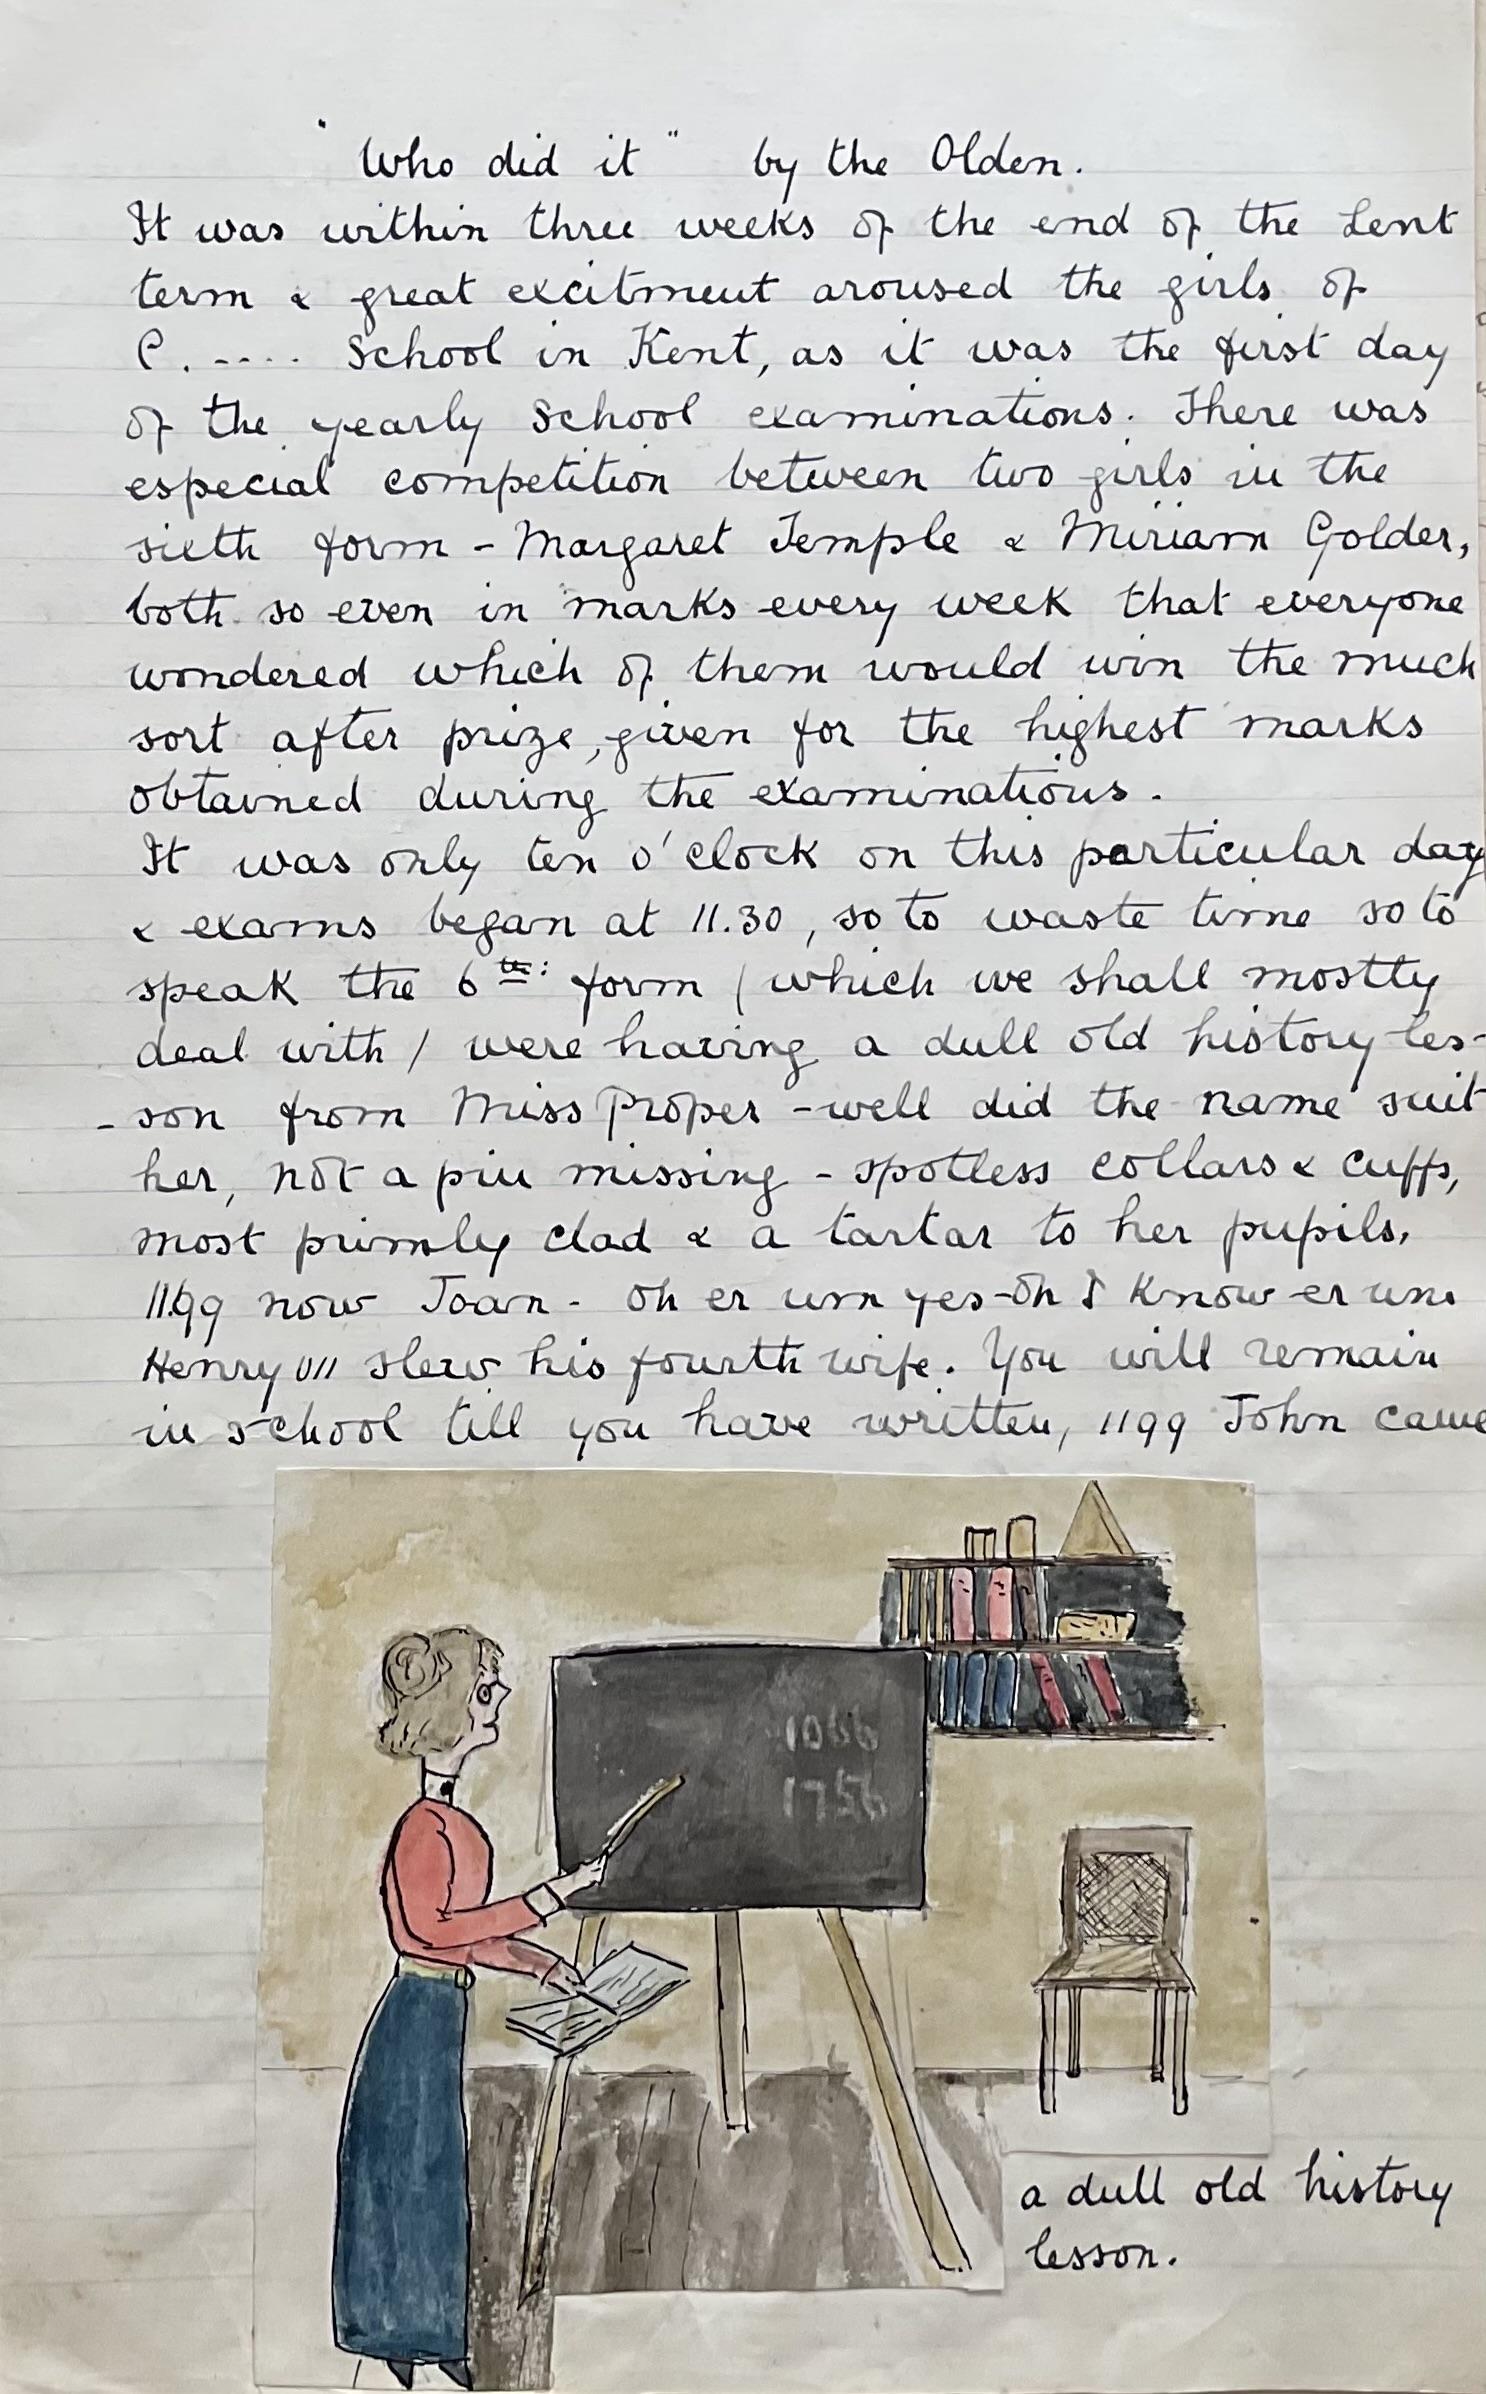 "Who did it" by the Olden.
It was within three weeks of the end of the Lent
term & great excitment aroused the girls of
C. .... School in Kent, as it was the first day
of the yearly School examinations. There was
especial competition between two girls in the
sixth form - Margaret Temple & Miriam Golder,
both so even in marks every week that everyone
wondered which of them would win the much
sort after prize, given for the highest marks
obtained during the examinations.
It was only ten o'clock on this particular day
& exams began at 11.30, so to waste time so to
speak the 6th: form (which we shall mostly
deal with) were having a dull old history les-
-son from Miss Proper - well did the name suit
her, not a pin missing - spotless collars & cuffs,
most primly clad & a tartar to her pupils.
1199 now Joan - oh er um yes-oh I know er um
Henry VII slew his fourth wife. You will remain
in school till you have written, 1199 John came
1066
1756
a dull old history
lesson.